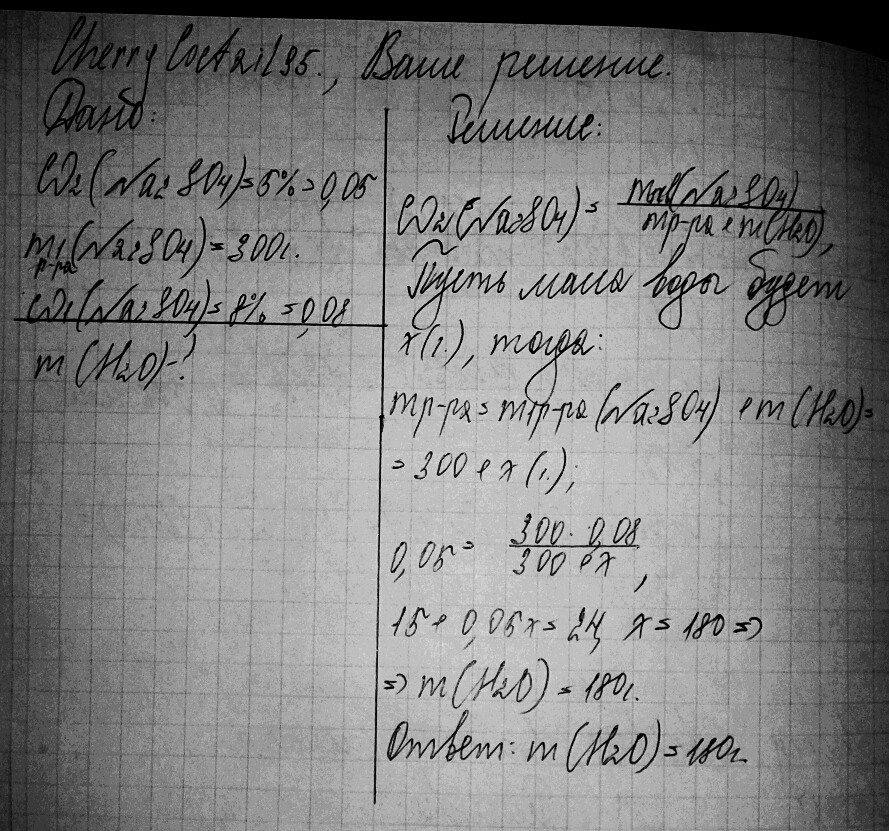 CherryCoctail95., Ваше решение.
Дано:
ω₂(Na₂SO₄)=5%=0,05
m₁(Na₂SO₄)=300г.
р-ра
ω₁(Na₂SO₄)=8%=0,08
m(H₂O)-?
Решение:
ω₂(Na₂SO₄)= (Na₂SO₄)
mр-ра+m(H₂O),
Пусть масса воды будет
x(г.), тогда:
mр-ра=m₁р-ра(Na₂SO₄)+m(H₂O)=
=300+x(г.);
0,05= 300·0,08
300+x,
15+0,05x=24, x=180=>
=> m(H₂O)=180г.
Ответ: m(H₂O)=180г.